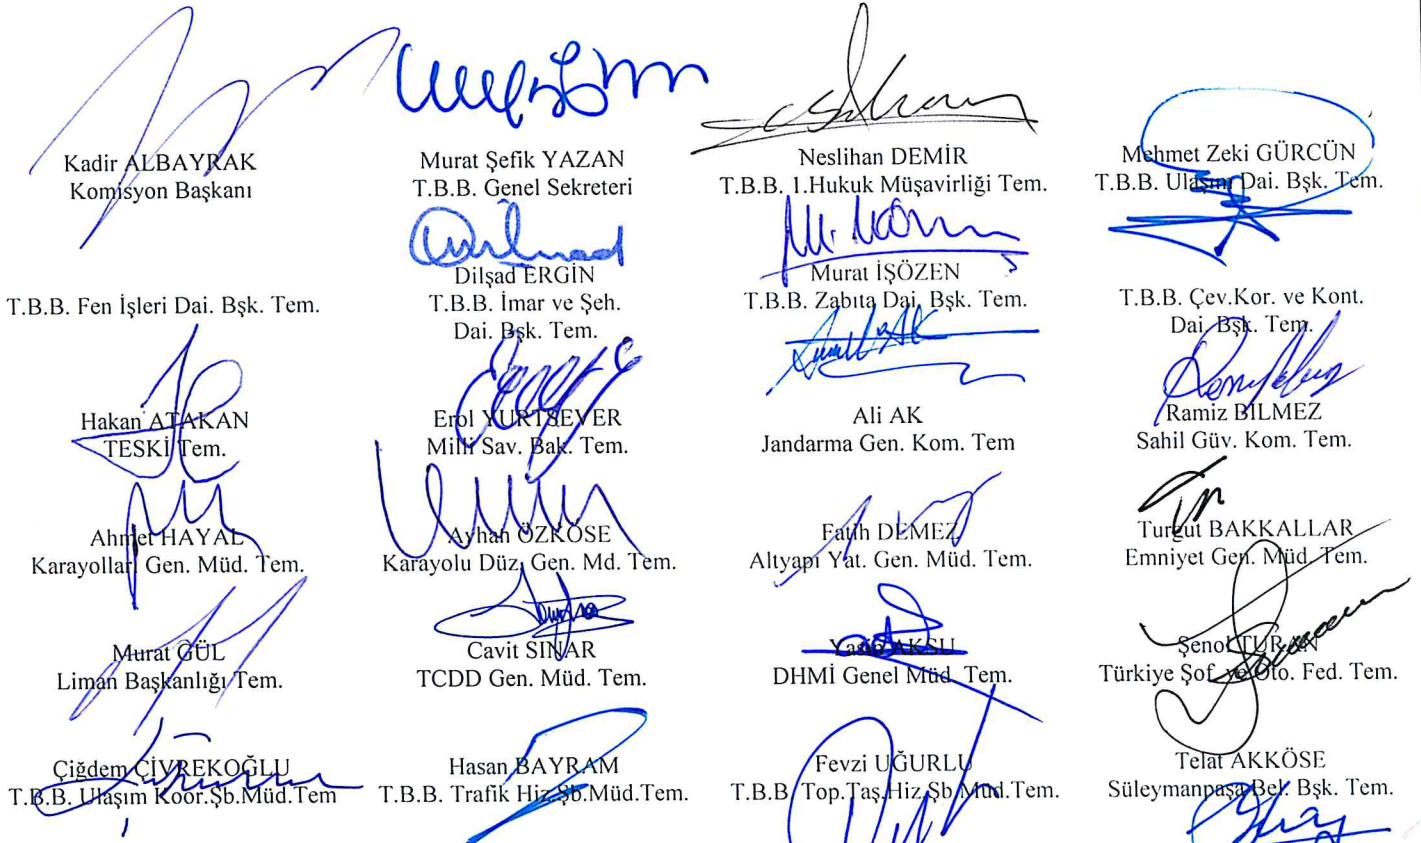 Kadir ALBAYRAK
Komisyon Başkanı
Murat Şefik YAZAN
T.B.B. Genel Sekreteri
Neslihan DEMİR
T.B.B. 1.Hukuk Müşavirliği Tem.
Mehmet Zeki GÜRCÜN
T.B.B. Ulaşım Dai. Bşk. Tem.
T.B.B. Fen İşleri Dai. Bşk. Tem.
Dilşad ERGİN
T.B.B. İmar ve Şeh.
Dai. Bşk. Tem.
Murat İŞÖZEN
T.B.B. Zabıta Dai. Bşk. Tem.
T.B.B. Çev.Kor. ve Kont.
Dai. Bşk. Tem.
Hakan ATAKAN
TESKİ Tem.
Erol YURTSEVER
Milli Sav. Bak. Tem.
Ali AK
Jandarma Gen. Kom. Tem
Ramiz BİLMEZ
Sahil Güv. Kom. Tem.
Ahmet HAYAL
Karayolları Gen. Müd. Tem.
Ayhan ÖZKÖSE
Karayolu Düz. Gen. Md. Tem.
Fatih DEMEZ
Altyapı Yat. Gen. Müd. Tem.
Turgut BAKKALLAR
Emniyet Gen. Müd. Tem.
Murat GÜL
Liman Başkanlığı Tem.
Cavit SINAR
TCDD Gen. Müd. Tem.
AKSU
DHMİ Genel Müd. Tem.
Şenol TURAN
Türkiye Şof. ve Oto. Fed. Tem.
Çiğdem ÇİVREKOĞLU
T.B.B. Ulaşım Koor.Şb.Müd.Tem
Hasan BAYRAM
T.B.B. Trafik Hiz.Şb.Müd.Tem.
Fevzi UĞURLU
T.B.B. Top.Taş.Hiz.Şb.Müd.Tem.
Telat AKKÖSE
Süleymanpaşa Bel. Bşk. Tem.